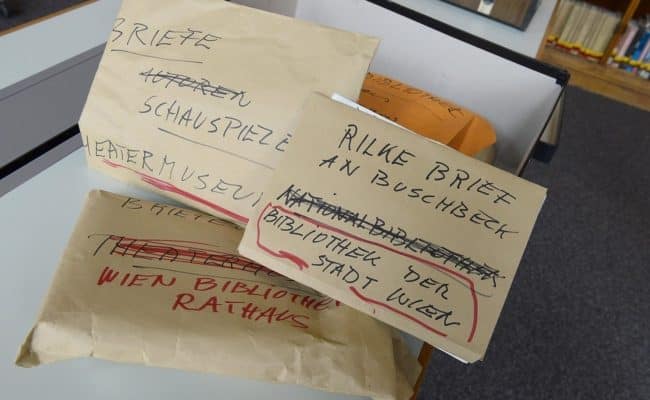 BRIEFE
AUTOREN
SCHAUSPIELE
HEATERMUSEU
RILKE BRIEF
AN BUSCHBECK
NATIONALBIBLIOTHEK
BIBLIOTHEK DER
STADT WIEN
BRIEFE
THEATERM
WIEN BIBLIOTHE
RATHAUS